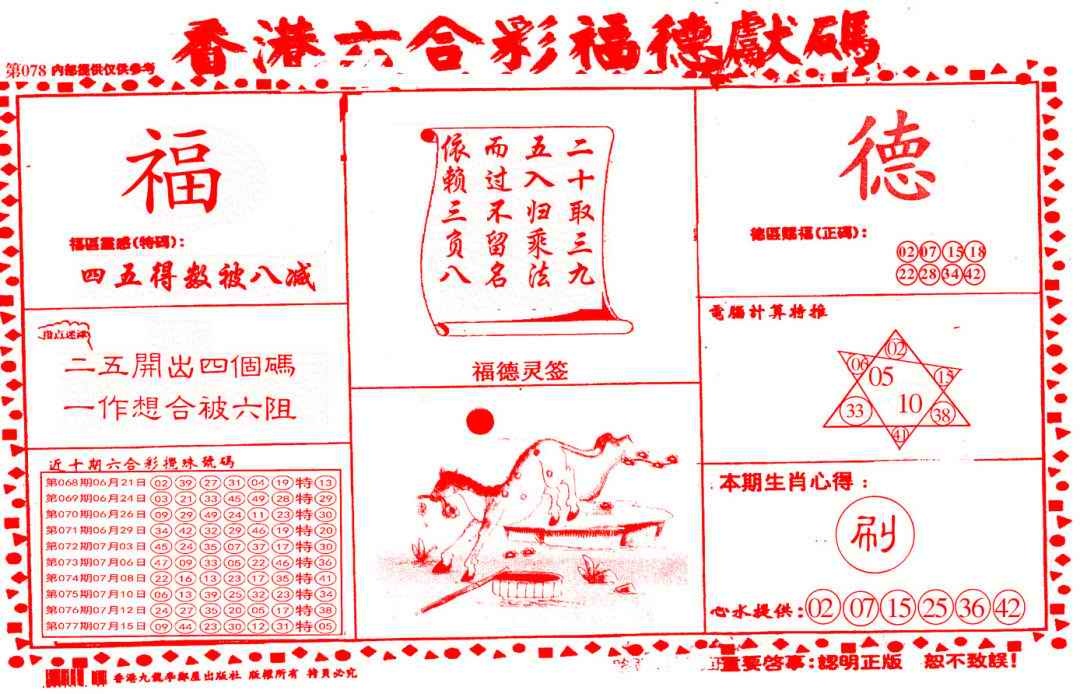 香港六合彩福德獻碼
第078 内部提供仅供参考
福
福區靈感(特碼):
四五得数被八减
二五開出四個碼
一作想合被六阻
近十期六合彩攪珠號碼
第068期06月21日 02 39 27 31 04 19 特 13
第069期06月24日 03 21 33 45 49 28 特 29
第070期06月26日 09 29 49 24 11 23 特 30
第071期06月29日 34 42 32 29 46 19 特 20
第072期07月03日 45 24 35 07 37 17 特 30
第073期07月06日 47 09 33 05 22 46 特 36
第074期07月08日 22 16 13 23 17 35 特 41
第075期07月10日 06 13 39 25 32 23 特 34
第076期07月12日 24 27 35 20 05 17 特 38
第077期07月15日 09 44 23 30 12 31 特 05
二十取三九
五入归乘法
而过不留名
依赖三负八
福德灵签
德
德區賜福(正碼):
02 07 15 18
22 28 34 42
電腦計算特推
02
06 05 15
33 10 38
41
本期生肖心得:
刷
心水提供: 02 07 15 25 36 42
出版社 版權所有 必究
重要啓事:認明正版 恕不致誤!